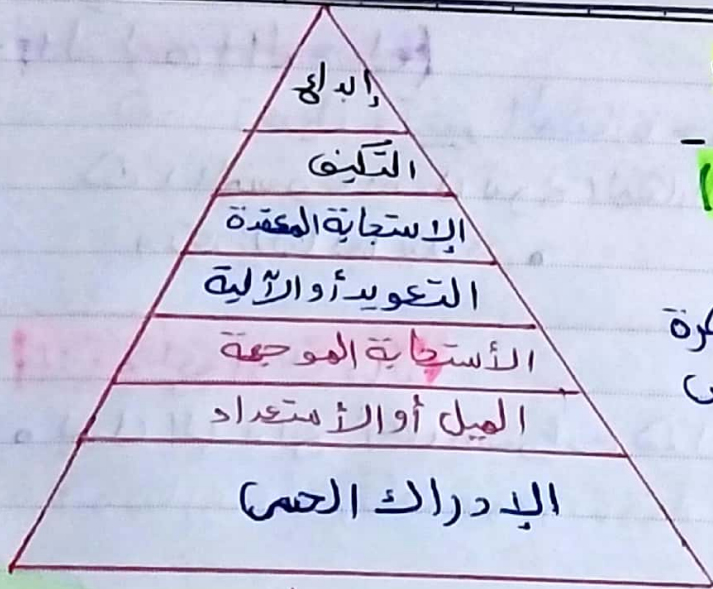 إبداع
التكيف
الإستجابة المعقدة
التعويد أو الآلية
الأستجابة الموجهة
الميل أو الأستعداد
الإدراك الحسي